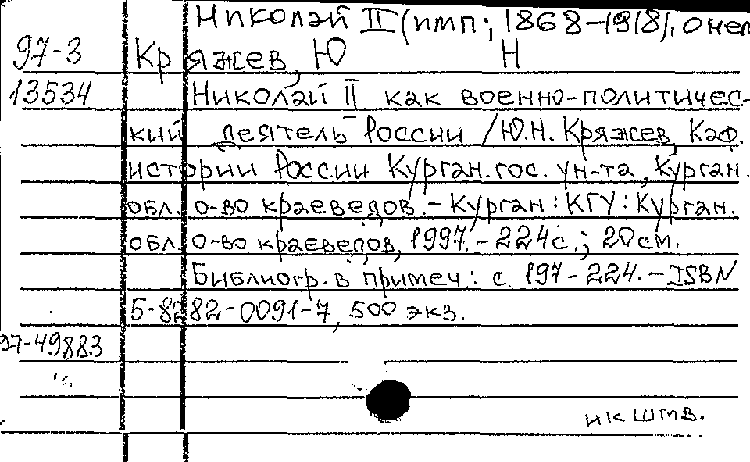 Николай II (имп; 1868-1918), о нем
97-3 Кряжев, Ю Н
13534 Николай II как военно-политичес-
кий деятель России / Ю.Н. Кряжев, Каф.
истории России Курган. гос. ун-та, Курган.
обл. о-во краеведов. - Курган : КГУ : Курган.
обл. о-во краеведов, 1997. - 224 с.; 20 см.
Библиогр. в примеч: с. 197-224. - ISBN
5-8282-0091-7, 500 экз.
97-49883
нк штв.